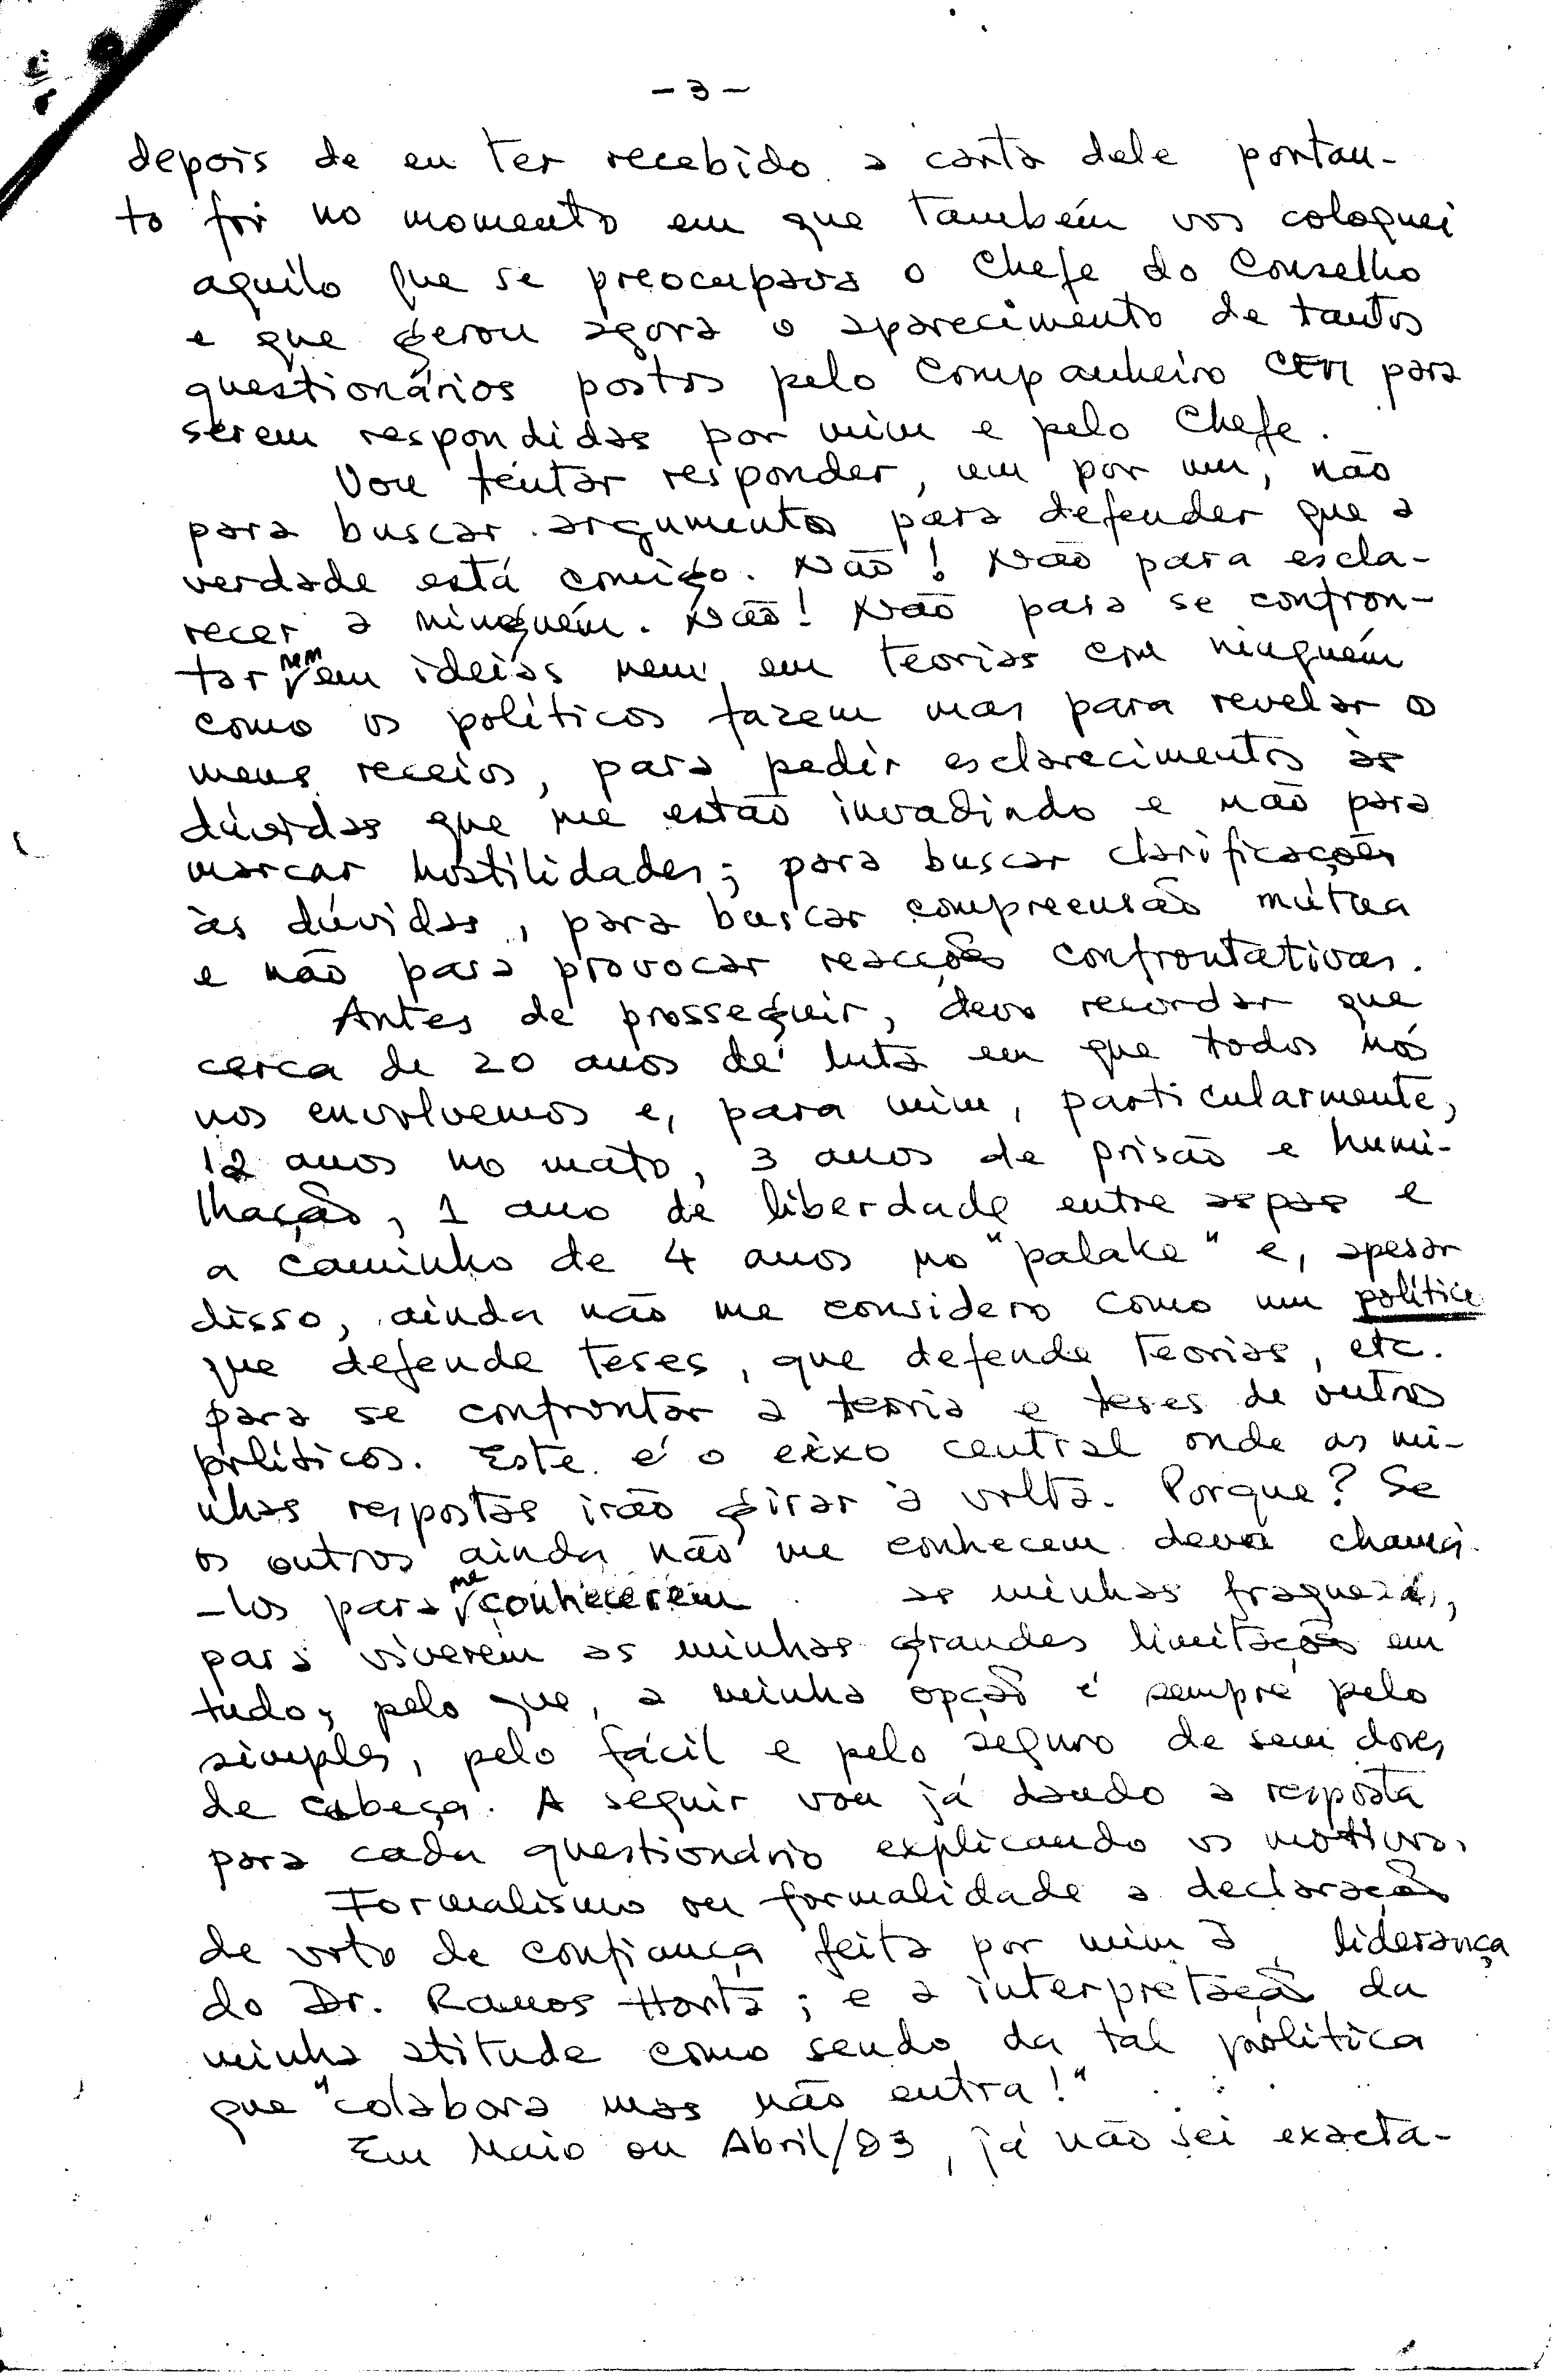 - 3 -
depois de eu ter recebido a carta dele portan-
to foi no momento em que também vos coloquei
aquilo que se preocupava o Chefe do Conselho
e que gerou agora o aparecimento de tantos
questionários postos pelo Companheiro CEM para
serem respondidas por mim e pelo Chefe.
Vou tentar responder, um por um, não
para buscar argumentos para defender que a
verdade está comigo. Não! Não para escla-
recer a ninguém. Não! Não para se confron-
tar nem em ideias nem em teorias com ninguém
como os políticos fazem mas para revelar o
meus receios, para pedir esclarecimentos às
dúvidas que me estão invadindo e não para
marcar hostilidades; para buscar clarificações
às dúvidas, para buscar compreensão mútua
e não para provocar reacções confrontativas.
Antes de prosseguir, devo recordar que
cerca de 20 anos de luta em que todos nós
nos envolvemos e, para mim, particularmente,
12 anos no mato, 3 anos de prisão e humi-
lhação, 1 ano de liberdade entre aspas e
a caminho de 4 anos no "palake" e, apesar
disso, ainda não me considero como um político
que defende teses, que defende teorias, etc.
para se confrontar a teoria e teses de outros
políticos. Este é o eixo central onde as mi-
nhas respostas irão girar à volta. Porque? Se
os outros ainda não me conhecem devo chamá-
-los para me conhecerem as minhas fraquezas,
para viverem as minhas grandes limitações em
tudo, pelo que, a minha opção é sempre pelo
simples, pelo fácil e pelo seguro de sem dores
de cabeça. A seguir vou já dando a resposta
para cada questionário explicando os motivos.
Formalismo ou formalidade a declaração
de voto de confiança feita por mim à liderança
do Dr. Ramos Horta; e a interpretação da
minha atitude como sendo da tal política
que "colabora mas não entra!"
Em Maio ou Abril/93, já não sei exacta-